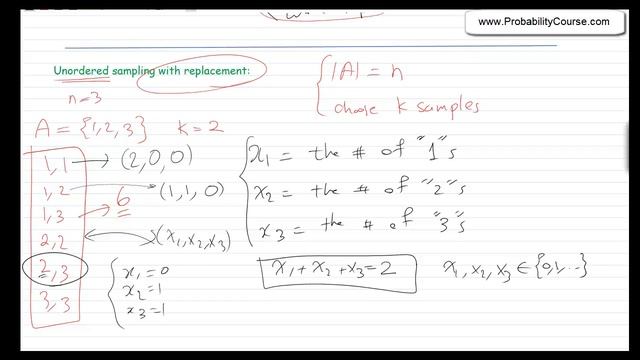 www.ProbabilityCourse.com
Unordered sampling with replacement:
|A| = n
choose k samples
n=3
A = {1,2,3} k=2
1,1 → (2,0,0)
1,2 → (1,1,0)
1,3 → 6
2,2 ↔ (x₁,x₂,x₃)
2,3
3,3
x₁ = the # of "1"s
x₂ = the # of "2"s
x₃ = the # of "3"s
x₁=0
x₂=1
x₃=1
x₁+x₂+x₃=2
x₁,x₂,x₃ ∈ {0,1,..}